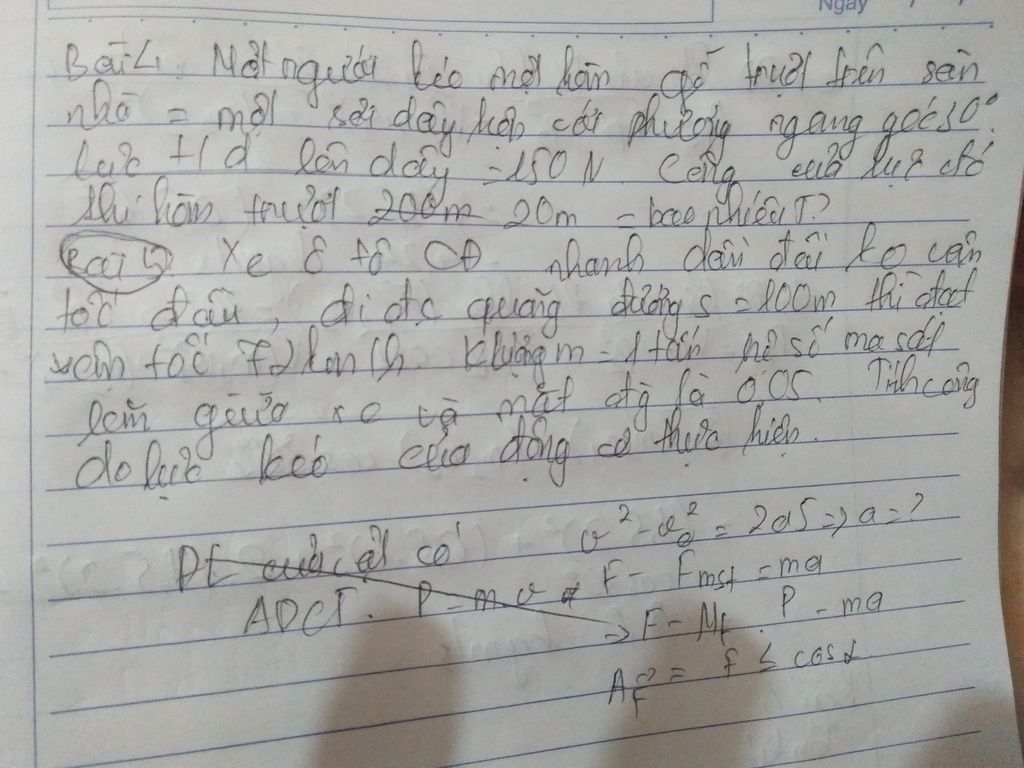 Ngày
Bài 4. Một người kéo một hòn gỗ trượt trên sàn
nhà = một sợi dây hợp với phương ngang góc 30°.
lực t/d lên dây = 150 N. Công của lực đó
khi hòn trượt 200m 20m = bao nhiêu T?
Bài 5 Xe ô tô CĐ nhanh dần đều ko vận
tốc đầu, đi đc quãng đường s = 100m thì đạt
vận tốc 72 km/h. K lượng m = 1 tấn hệ số ma sát
lăn giữa xe và mặt đg là 0,05. Tính công
do lực kéo của động cơ thực hiện.
v² - v₀² = 2aS => a = ?
PT có F - Fmst = ma
ADCT. P = m => F - Mt. P = ma
A F = F S cosα